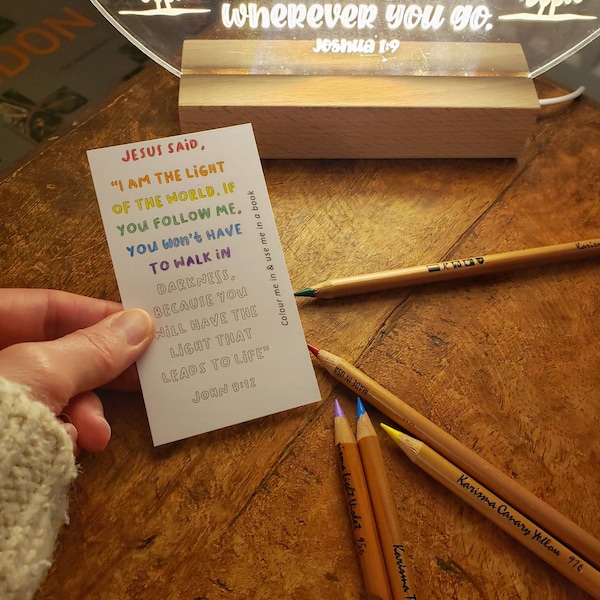 wherever you go.
Joshua 1:9
DON
JESUS SAID,
"I AM THE LIGHT
OF THE WORLD. IF
YOU FOLLOW ME,
YOU WON'T HAVE
TO WALK IN
DARKNESS,
BECAUSE YOU
WILL HAVE THE
LIGHT THAT
LEADS TO LIFE"
JOHN 8:12
Colour me in & use me in a book
Karisma
MADE IN USA
Karisma Canary Yellow 916
Light Violet 956
Karisma